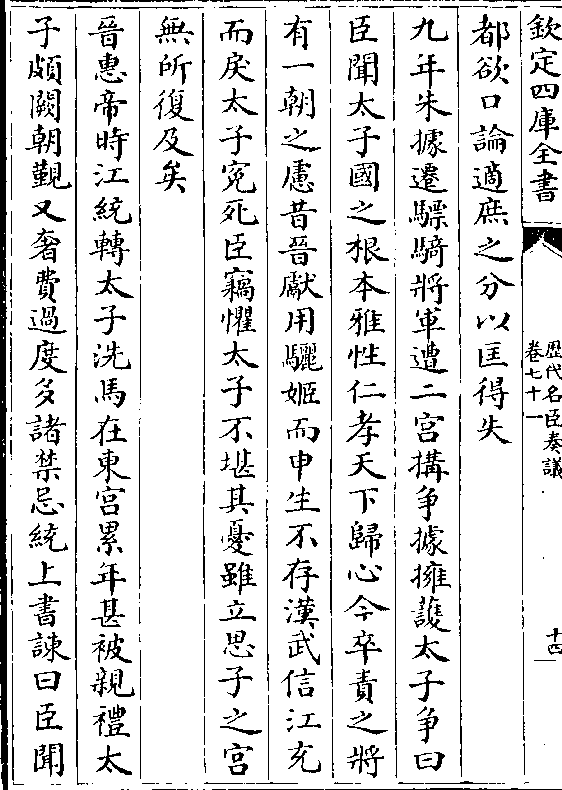 欽定四庫全書
歷代名臣奏議
卷七十一
十四
都欲口論適庶之分以匡得失
九年朱據遷驃騎將軍遭二宮搆爭據擁護太子爭曰
臣聞太子國之根本雅性仁孝天下歸心今卒責之將
有一朝之慮昔晉獻用驪姬而申生不存漢武信江充
而戾太子寃死臣竊懼太子不堪其憂雖立思子之宮
無所復及矣
晉惠帝時江統轉太子洗馬在東宮累年甚被親禮太
子頗闕朝覲又奢費過度多諸禁忌統上書諫曰臣聞